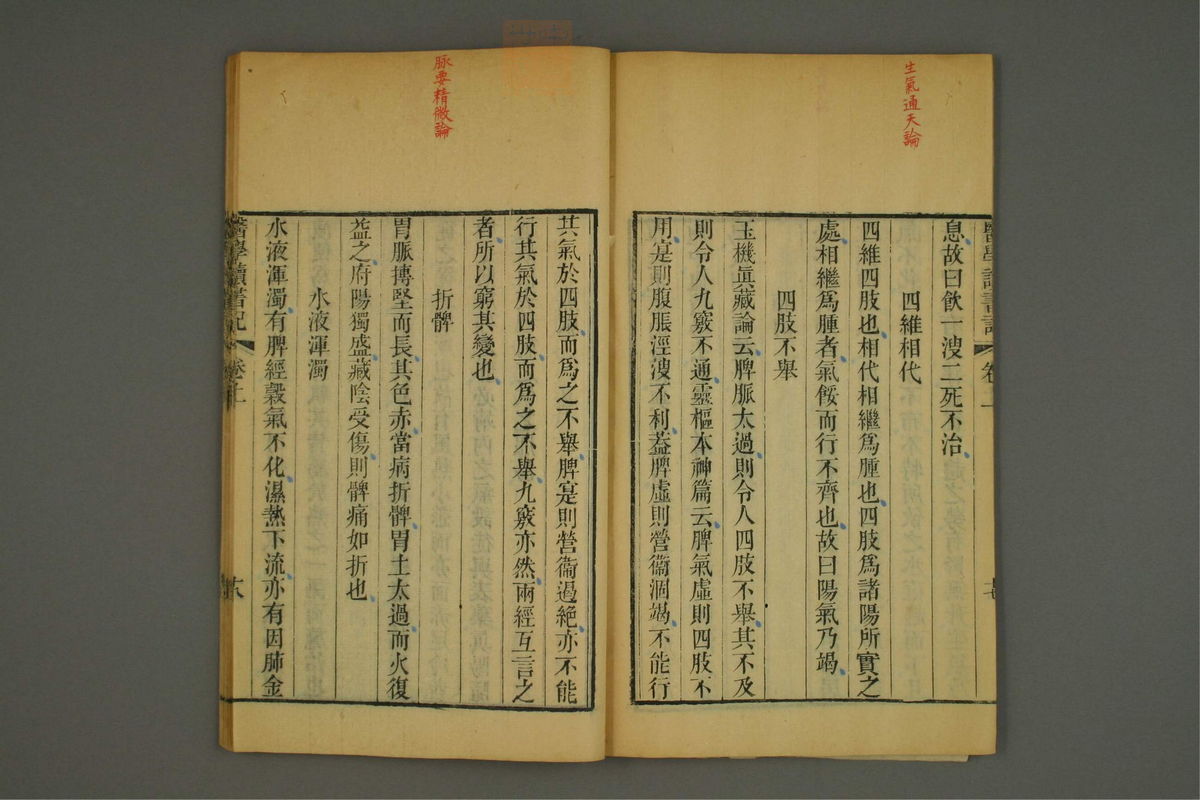 生氣通天論
息故曰飲一溲二死不治
四維相代
四維四肢也相代相繼爲腫也四肢爲諸陽所實之
處相繼爲腫者氣餒而行不齊也故曰陽氣乃竭
四肢不舉
玉機眞藏論云脾脈太過則令人四肢不舉其不及
則令人九竅不通靈樞本神篇云脾氣虛則四肢不
用寔則腹脹涇溲不利葢脾虛則營衞涸竭不能行
脉要精微論
其氣於四肢而爲之不舉脾寔則營衞遏絶亦不能
行其氣於四肢而爲之不舉九竅亦然兩經互言之
者所以窮其變也
折髀
胃脈摶堅而長其色赤當病折髀胃土太過而火復
葢之府陽獨盛藏陰受傷則髀痛如折也
水液渾濁
水液渾濁有脾經穀氣不化濕熱下流亦有因肺金
醫學讀書記 卷上 十八